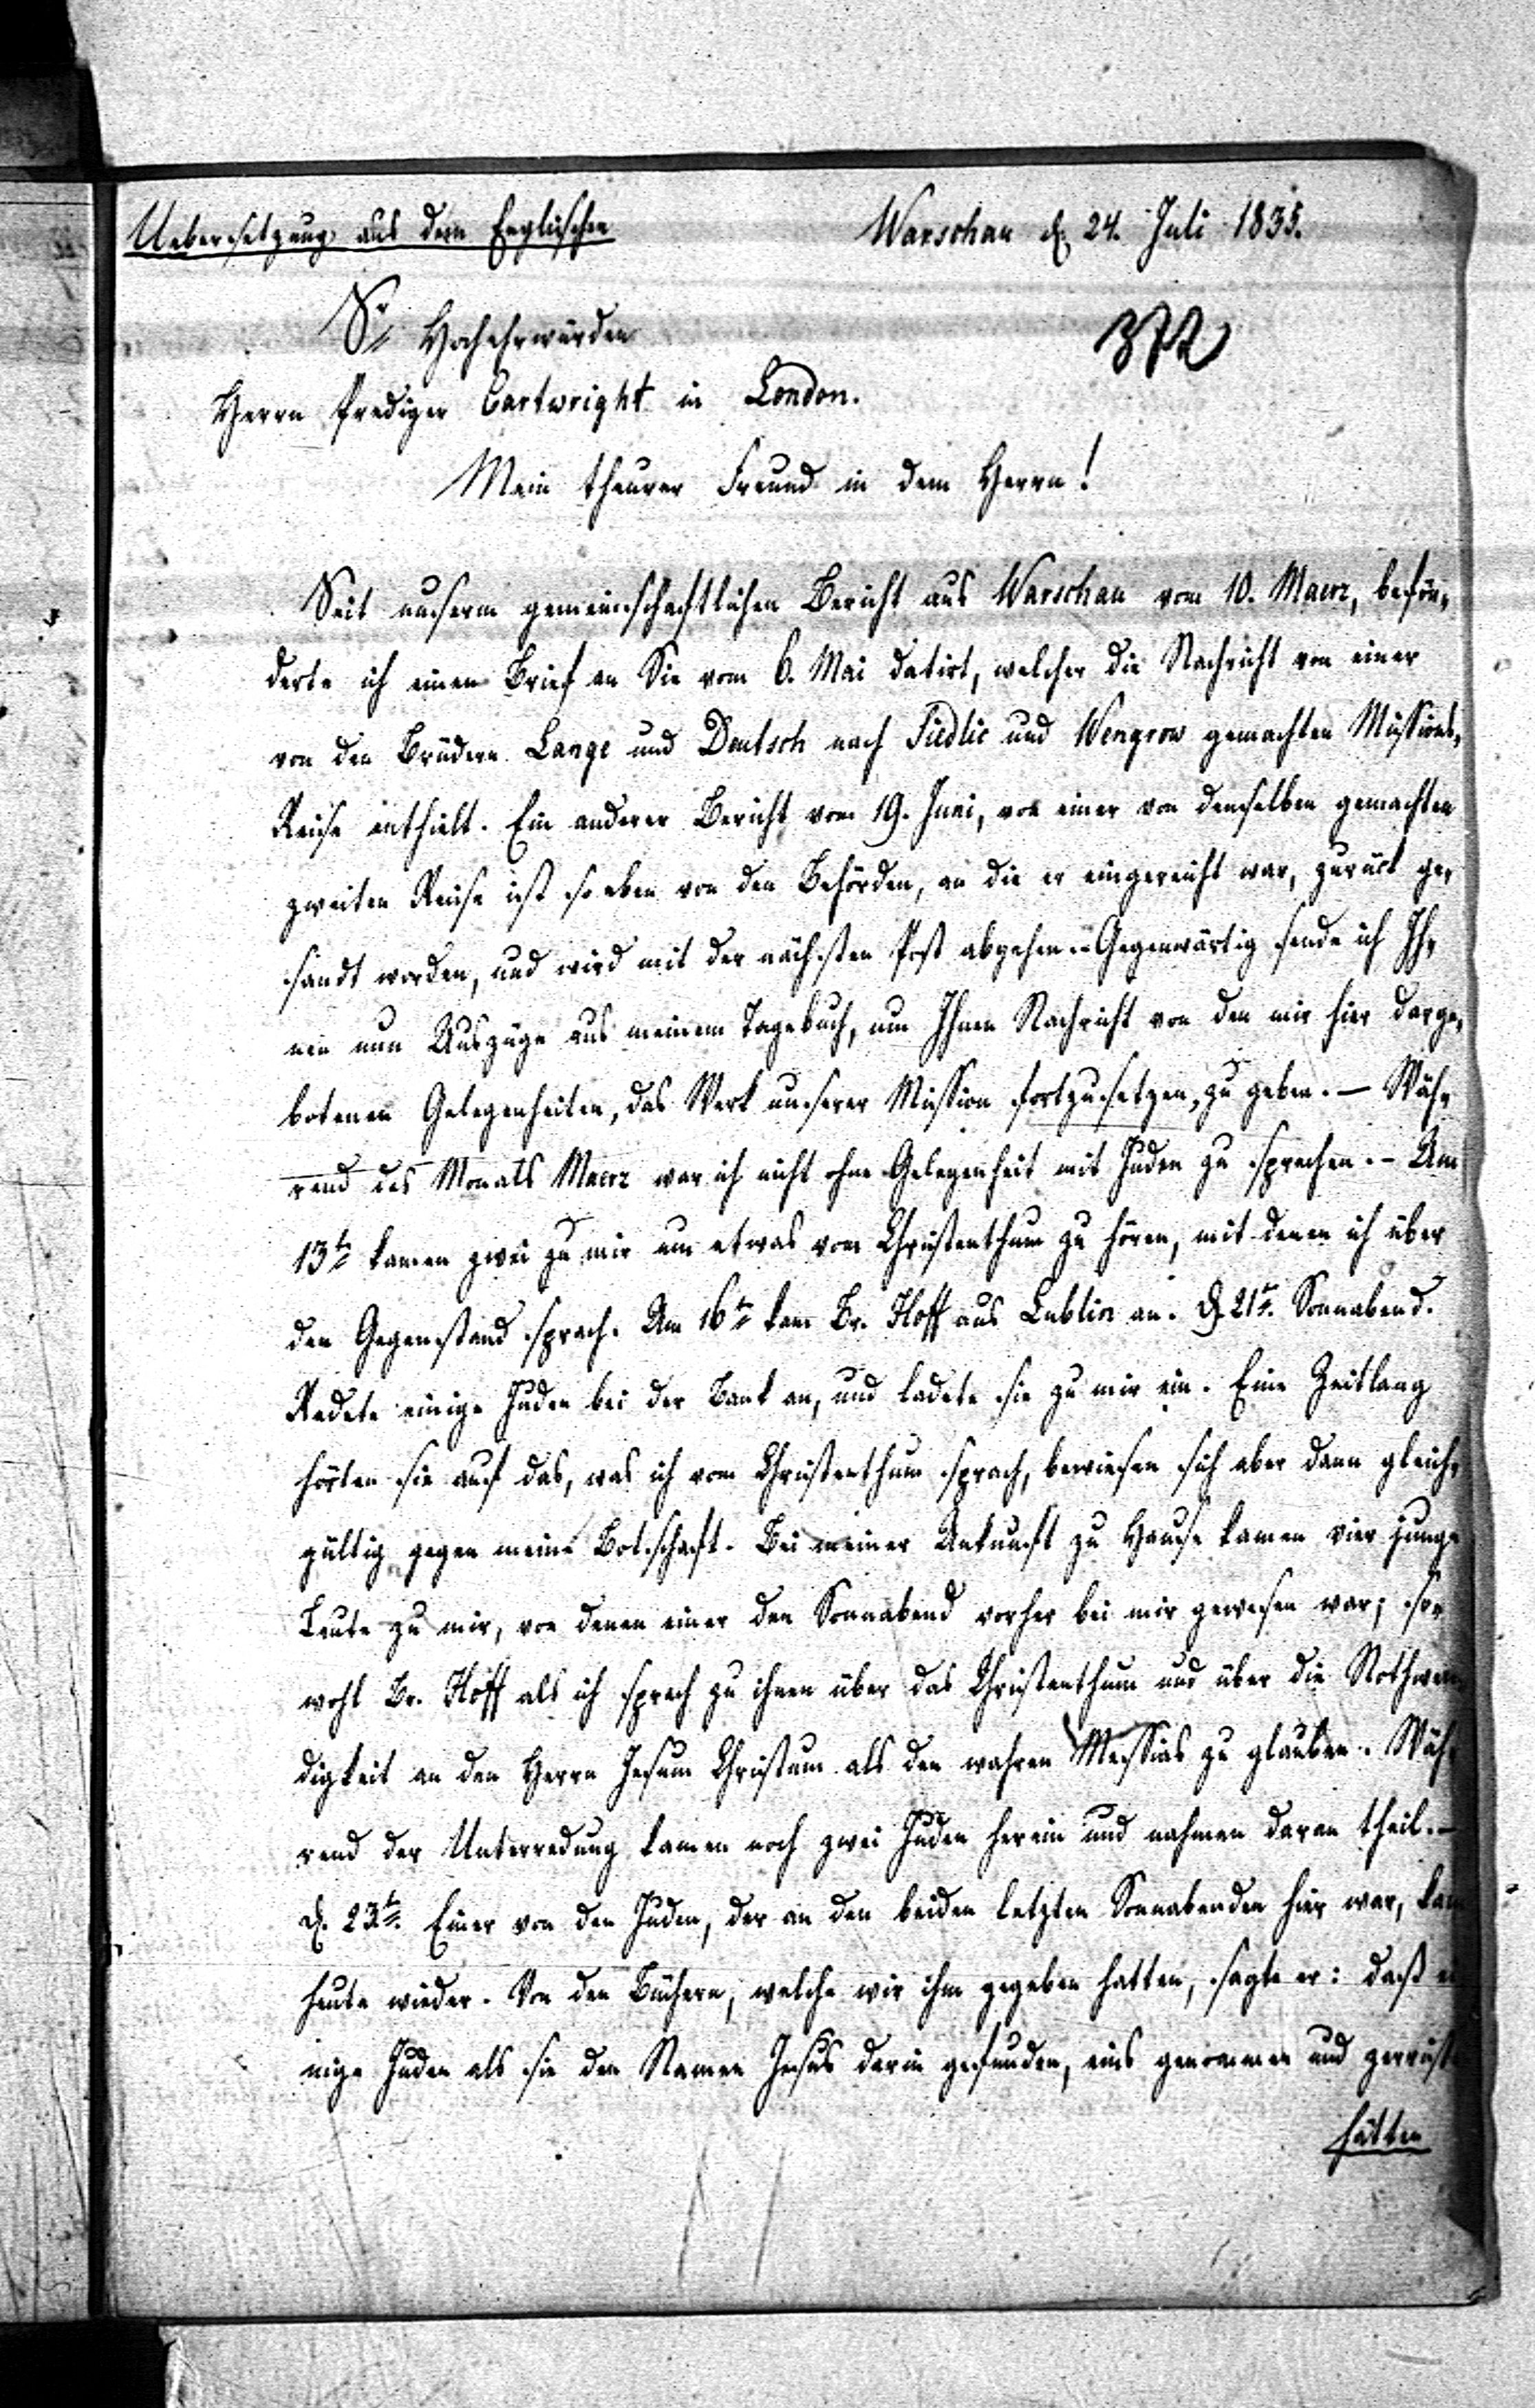 Uebersetzung aus dem Englischen
Warschau d. 24. Juli 1835.
Sr Hochehrwürden
372
Herrn Prediger Cartwright in London.
Mein theurer Freund in dem Herrn!
Seit unserm gemeinschaftlichen Bericht aus Warschau vom 10. Maerz, beför-
derte ich einen Brief an Sie vom 6. Mai datirt, welcher die Nachricht von einer
von den Brüdern Lange und Deutsch nach Siedlic und Wengrow gemachten Missions-
Reise enthielt. Ein anderer Bericht vom 19. Juni, von einer von denselben gemachten
zweiten Reise ist so eben von den Behörden, an die er eingereicht war, zurück ge-
sandt worden, und wird mit der nächsten Post abgehen. – Gegenwärtig sende ich Ih-
nen nun Auszüge aus meinem Tagebuch, um Ihnen Nachricht von den mir hier darge-
botenen Gelegenheiten, das Werk unserer Mission fortzusetzen, zu geben. – Wäh-
rend des Monats Maerz war ich nicht ohne Gelegenheit mit Juden zu sprechen. – Am
13tn kamen zwei zu mir um etwas vom Christenthum zu hören, mit denen ich über
den Gegenstand sprach. Am 16tn kam Br. Hoff aus Lublin an. D. 21tn. Sonnabend.
Redete einige Juden bei der Bank an, und ladete sie zu mir ein. Eine Zeitlang
hörten sie auf das, was ich vom Christenthum sprach, bewiesen sich aber dann gleich-
gültig gegen meine Botschaft. Bei meiner Ankunft zu Hause kamen vier junge
Leute zu mir, von denen einer den Sonnabend vorher bei mir gewesen war; so-
wohl Br. Hoff als ich sprach zu ihnen über das Christenthum und über die Nothwen-
digkeit an den Herrn Jesum Christum als den wahren Messias zu glauben. Wäh-
rend der Unterredung kamen noch zwei Juden herein und nahmen daran theil. –
d. 23tn. Einer von den Juden, der an den beiden letzten Sonnabenden hier war, kam
heute wieder. Von den Büchern, welche wir ihm gegeben hatten, sagte er: daß ei
nige Juden als sie den Namen Jesus darin gefunden, eins genommen und zerrissen
hätten